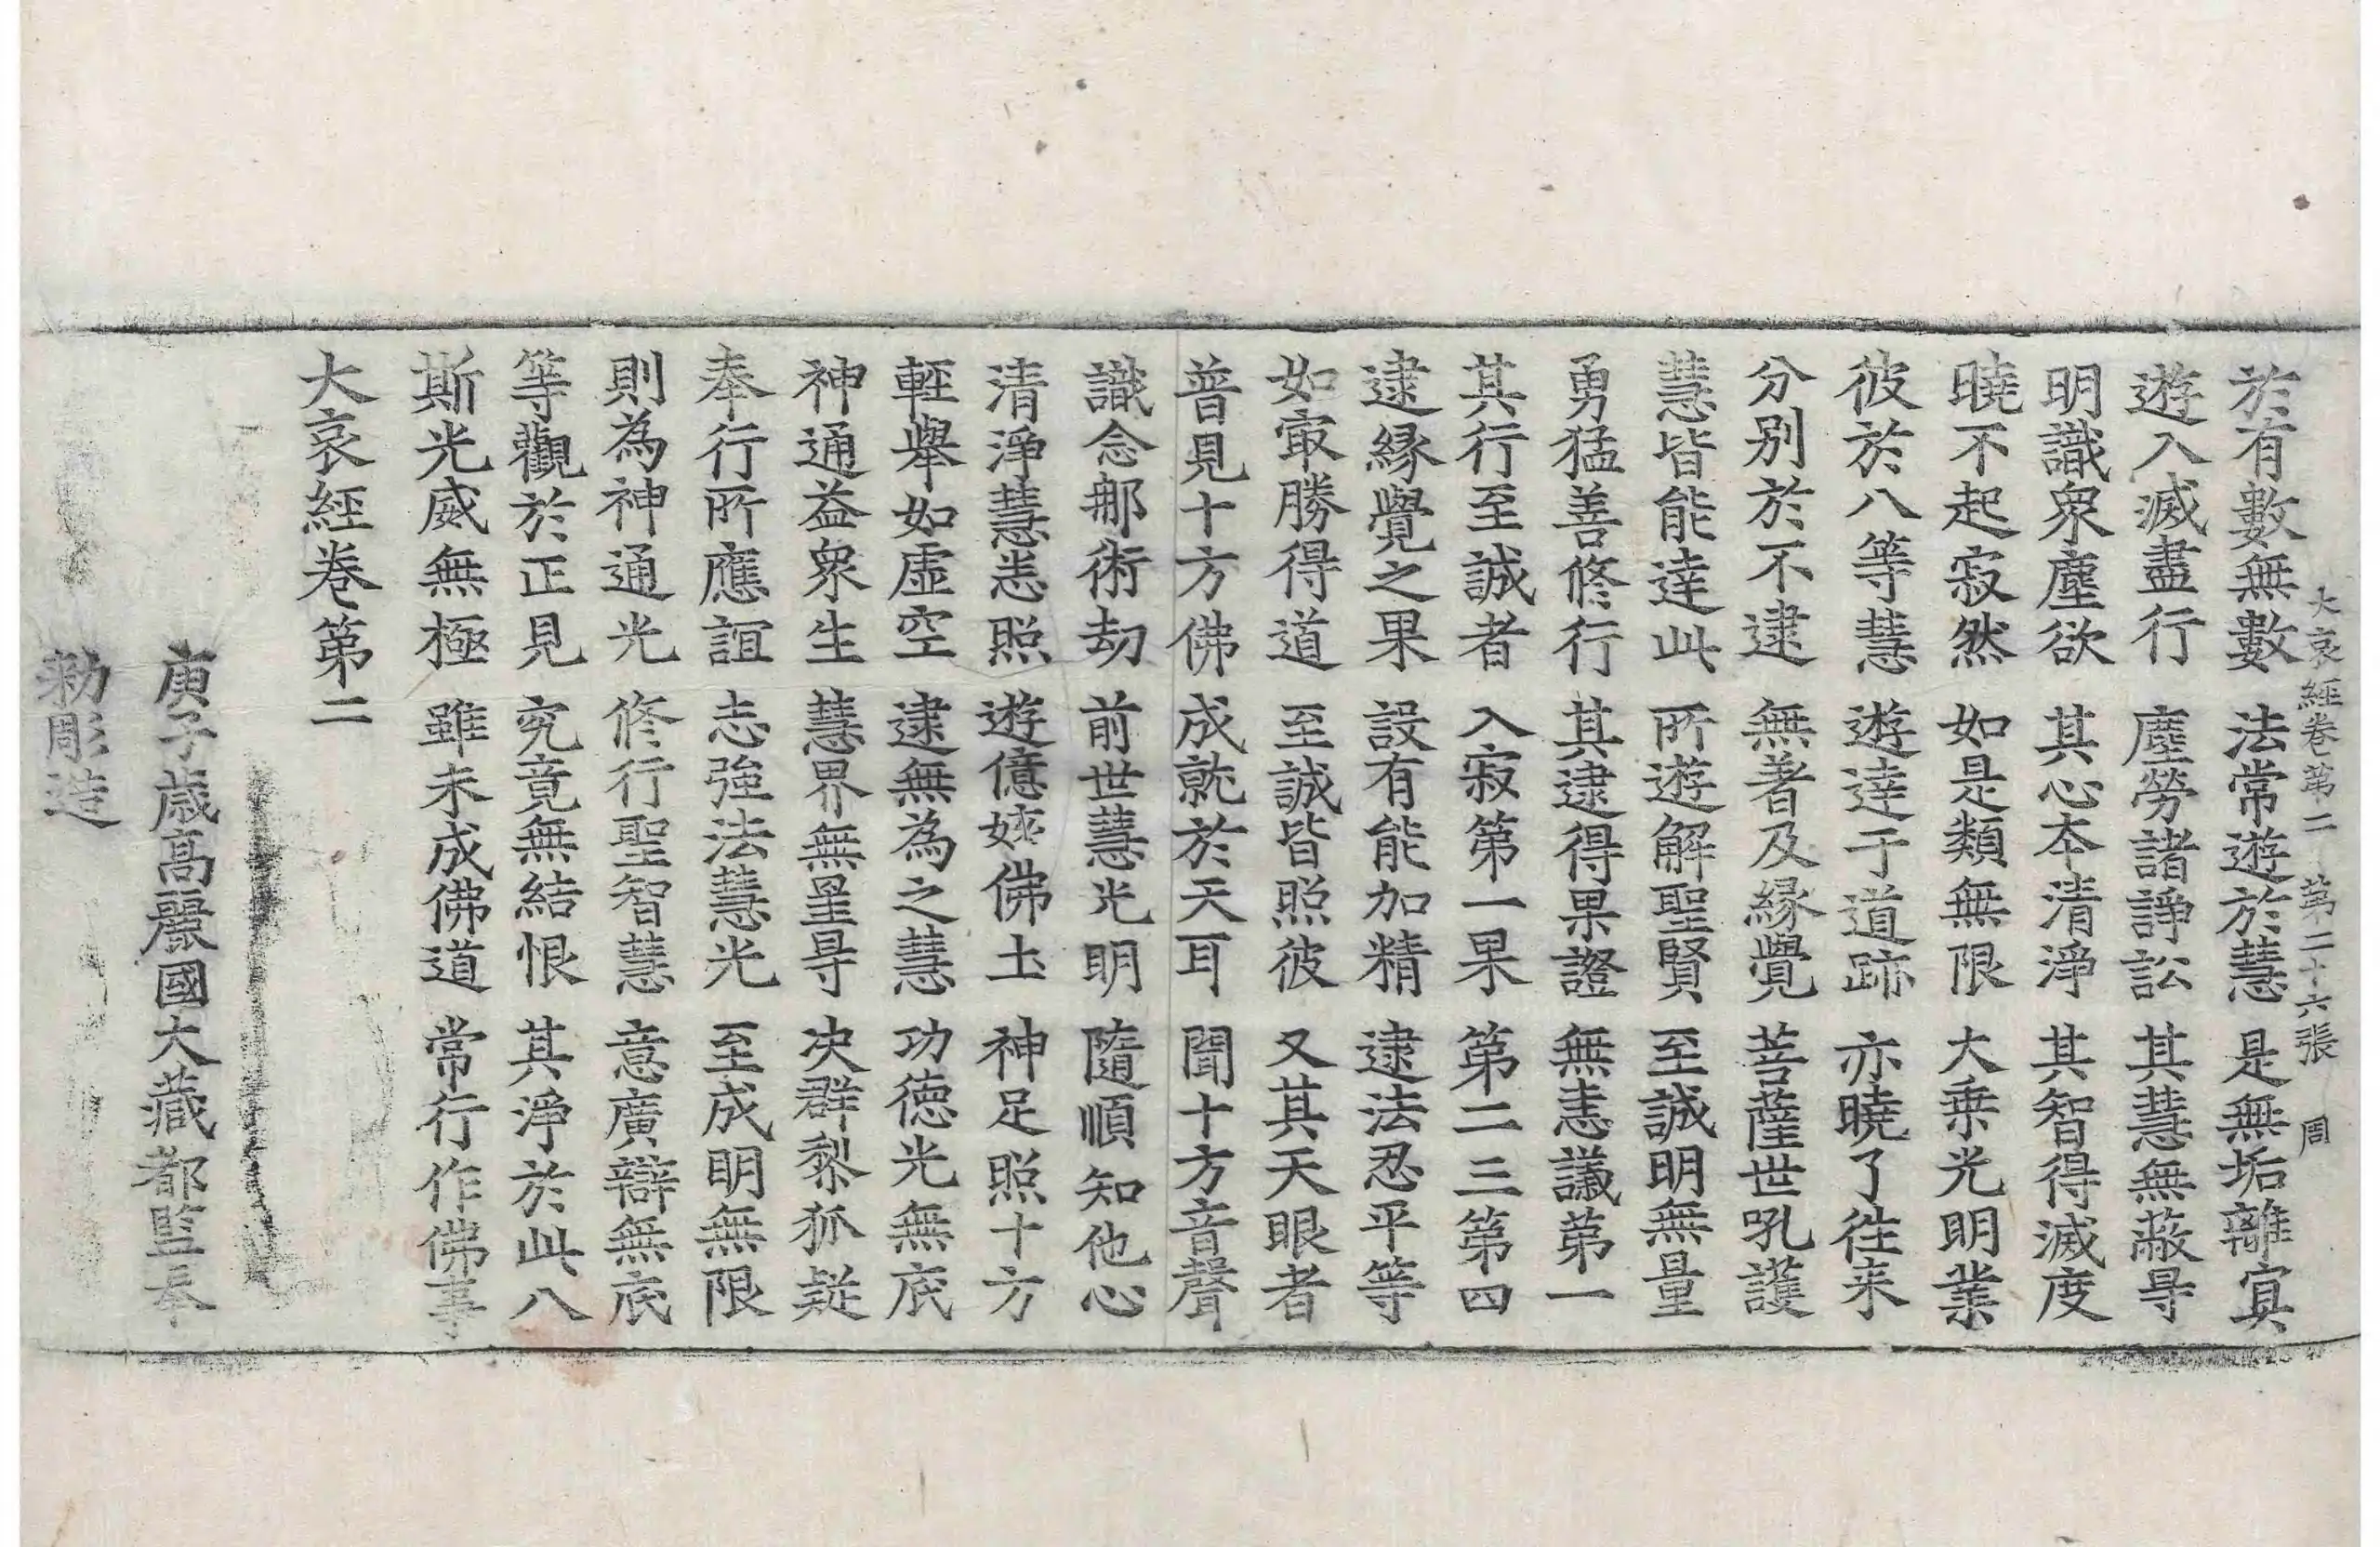 大哀經卷第二 第二十六張 周
於有數無數 法常遊於慧 是無垢離冥
遊入滅盡行 塵勞諸諍訟 其慧無蔽㝵
明識衆塵欲 其心本清淨 其智得滅度
曉不起寂然 如是類無限 大乗光明業
彼於八等慧 遊達于道跡 亦曉了往来
分別於不逮 無著及緣覺 菩薩世吼護
慧皆能達此 所遊解聖賢 至誠明無量
勇猛善修行 其逮得果證 無恚議苐一
其行至誠者 入寂第一果 第二三第四
逮緣覺之果 設有能加精 逮法忍平等
如㝡勝得道 至誠皆照彼 又其天眼者
普見十方佛 成就於天耳 聞十方音聲
識念郍術劫 前世慧光明 隨順知他心
清淨慧悉照 遊億姟佛土 神足照十方
輕舉如虛空 逮無為之慧 功德光無底
神通益衆生 慧界無量㝵 決群黎狐疑
奉行所應誼 志強法慧光 至成明無限
則為神通光 修行聖智慧 意廣辯無底
等觀於正見 究竟無結恨 其淨於此八
斯光威無極 雖未成佛道 常行作佛事
大哀經卷第二
庚子歲高麗國大藏都監奉
勑彫造